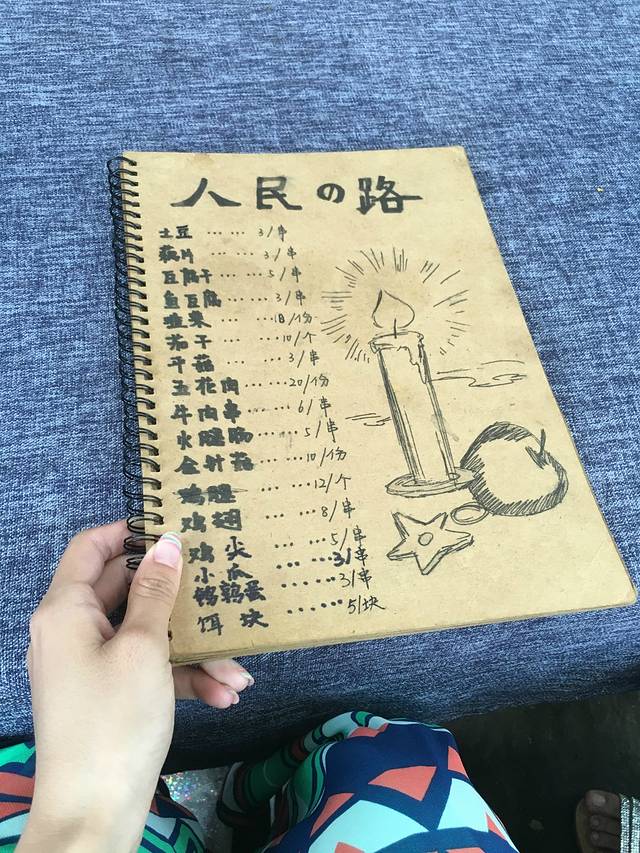 人民の路
土豆 … … 3/串
藕片 … … 3/串
豆腐干 … … 5/串
鱼豆腐 … … 3/串
韭菜 … … 18/份
茄子 … … 10/个
干菇 … … 3/串
五花肉 … … 20/份
牛肉串 … … 6/串
火腿肠 … … 5/串
金针菇 … … 10/份
鸡腿 … … 12/个
鸡翅 … … 8/串
鸡尖 … … 5/串
小瓜 …… 3/串
鹌鹑蛋 …… 3/串
饵块 …… 5/块